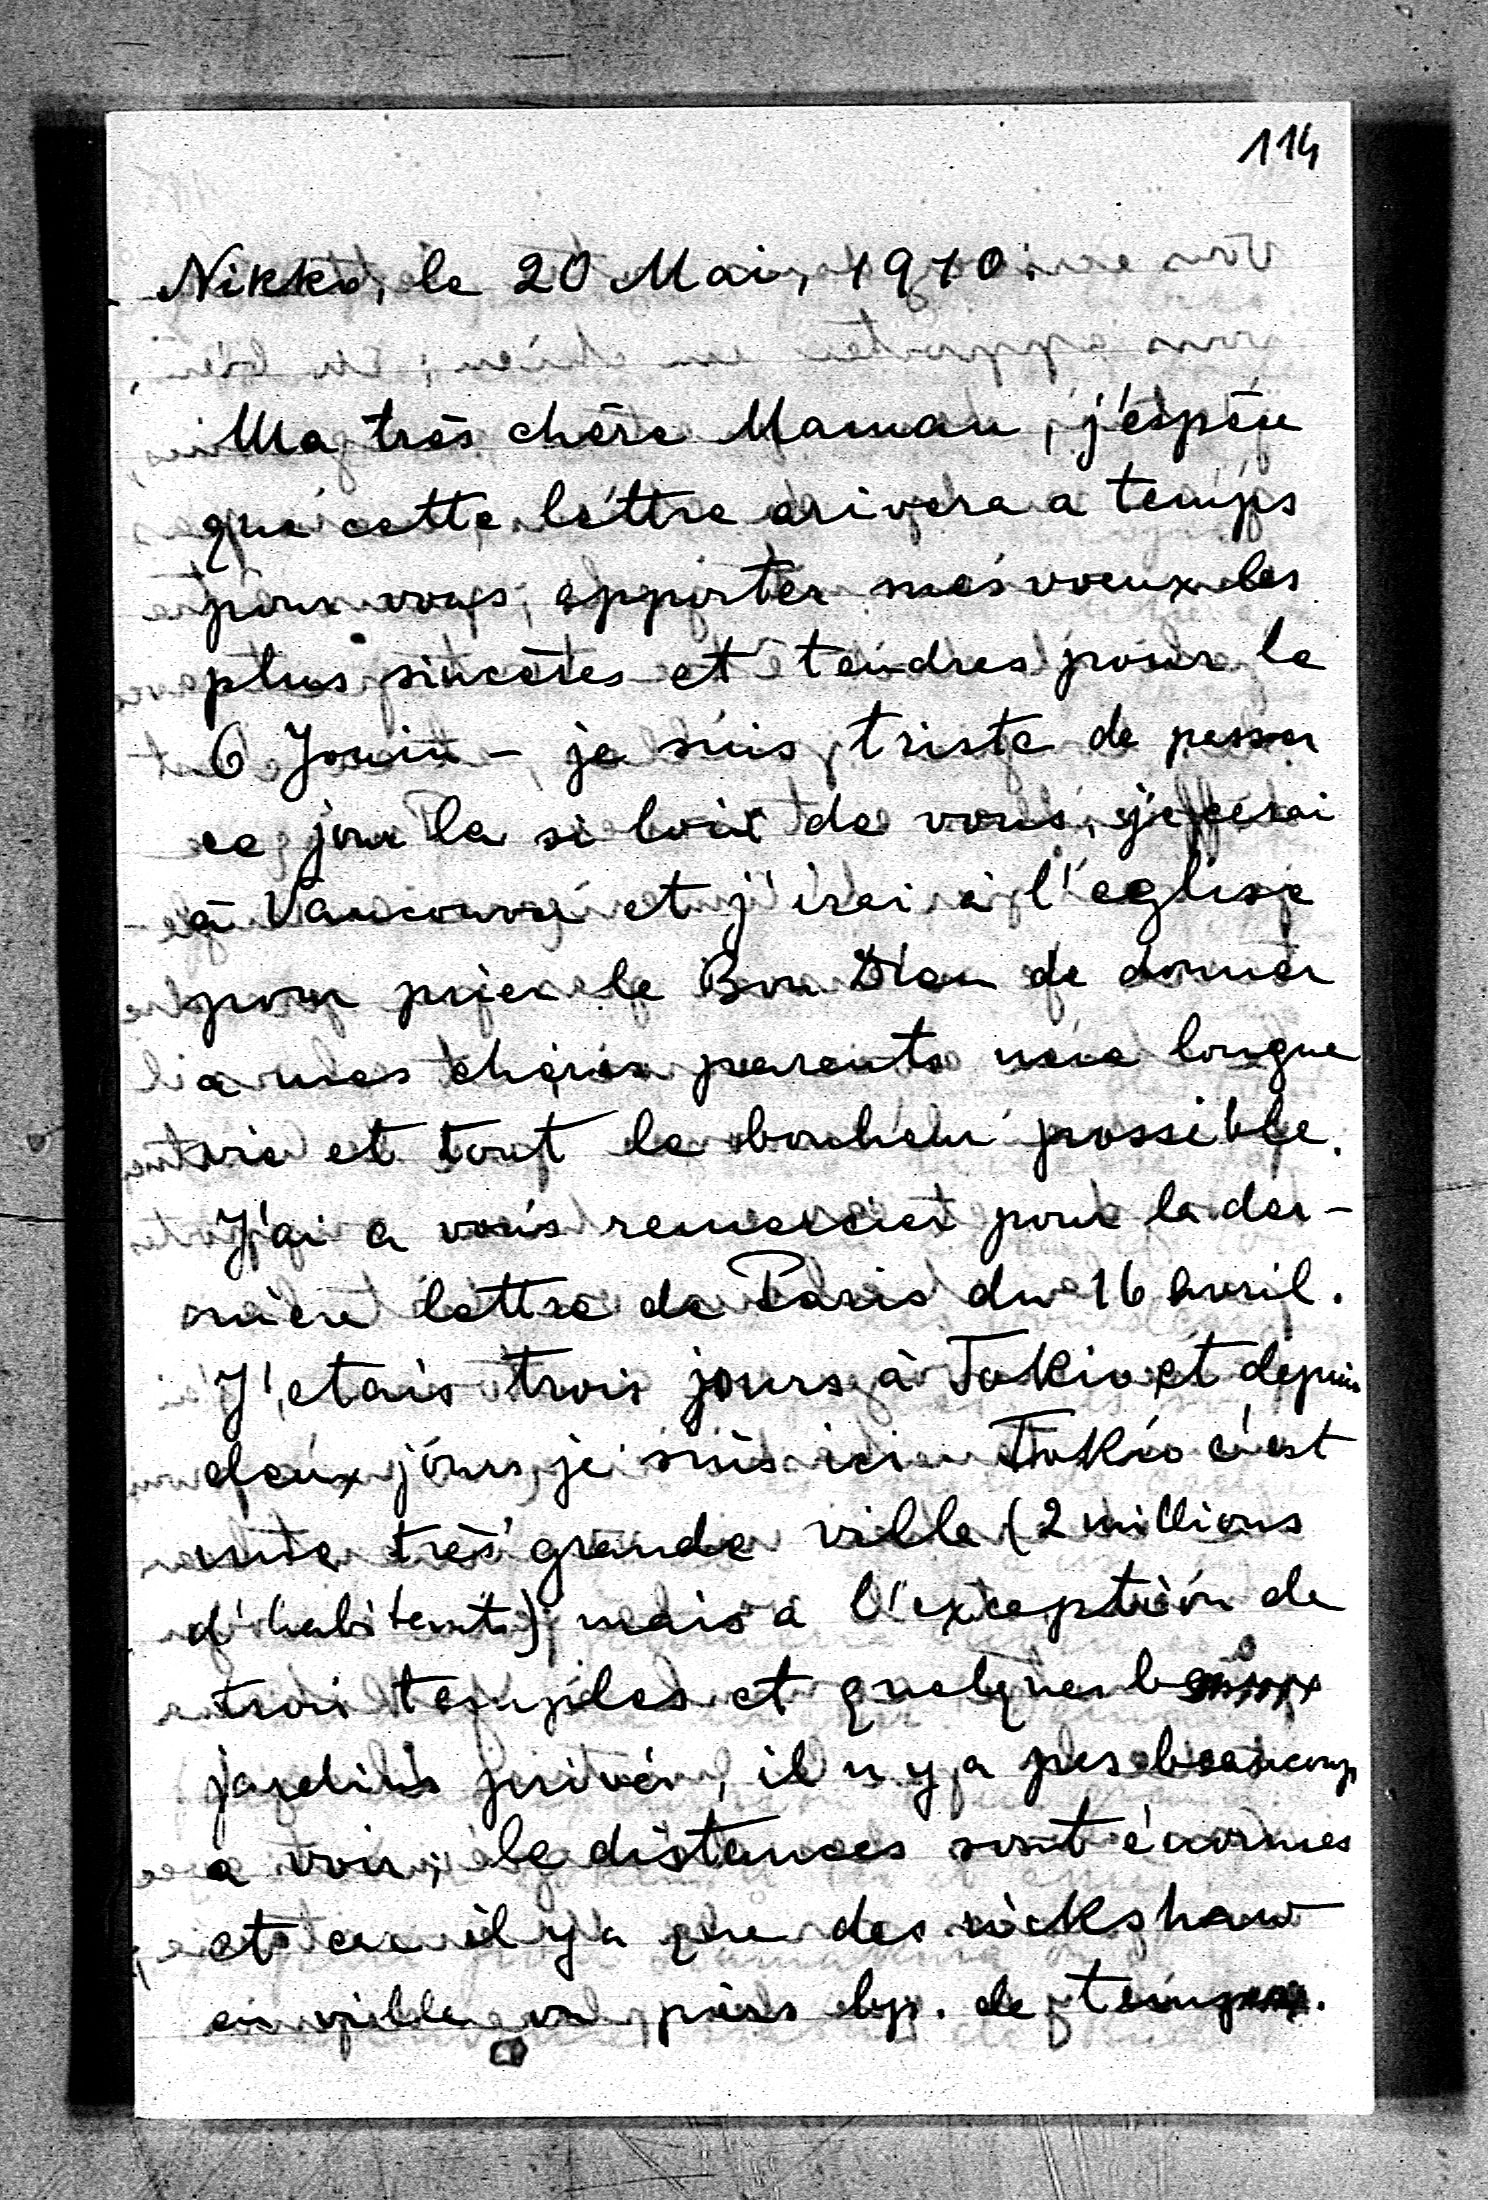 114
Nikko, le 20 Mai, 1910.
Ma très chère Maman, j'éspère
que cette lettre arivera a temps
pour vous apporter mes voeux les
plus sincères et tendres pour le
6 Jouin - je suis triste de passer
ce jour la si loin de vous, je serai
à Vancouver et j'irai à l'eglise
pour prier le Bon Dieu de donner
a mes chéris parents une longue
vie et tout le bonheur possible.
J'ai a vous remercier pour la der-
nière lettre de Paris du 16 Avril.
J'etais trois jours à Tokio et depuis
deux jours je suis ici. Tokio c'est
une très grande ville (2 millions
d'habitents) mais a l'exception de
trois temples et quelques beaux
jardins privés, il n y a pas beaucoup
a voir, le distances sont énormes
et ce il y a que des rickshaw
en ville on pers bp. de temps.